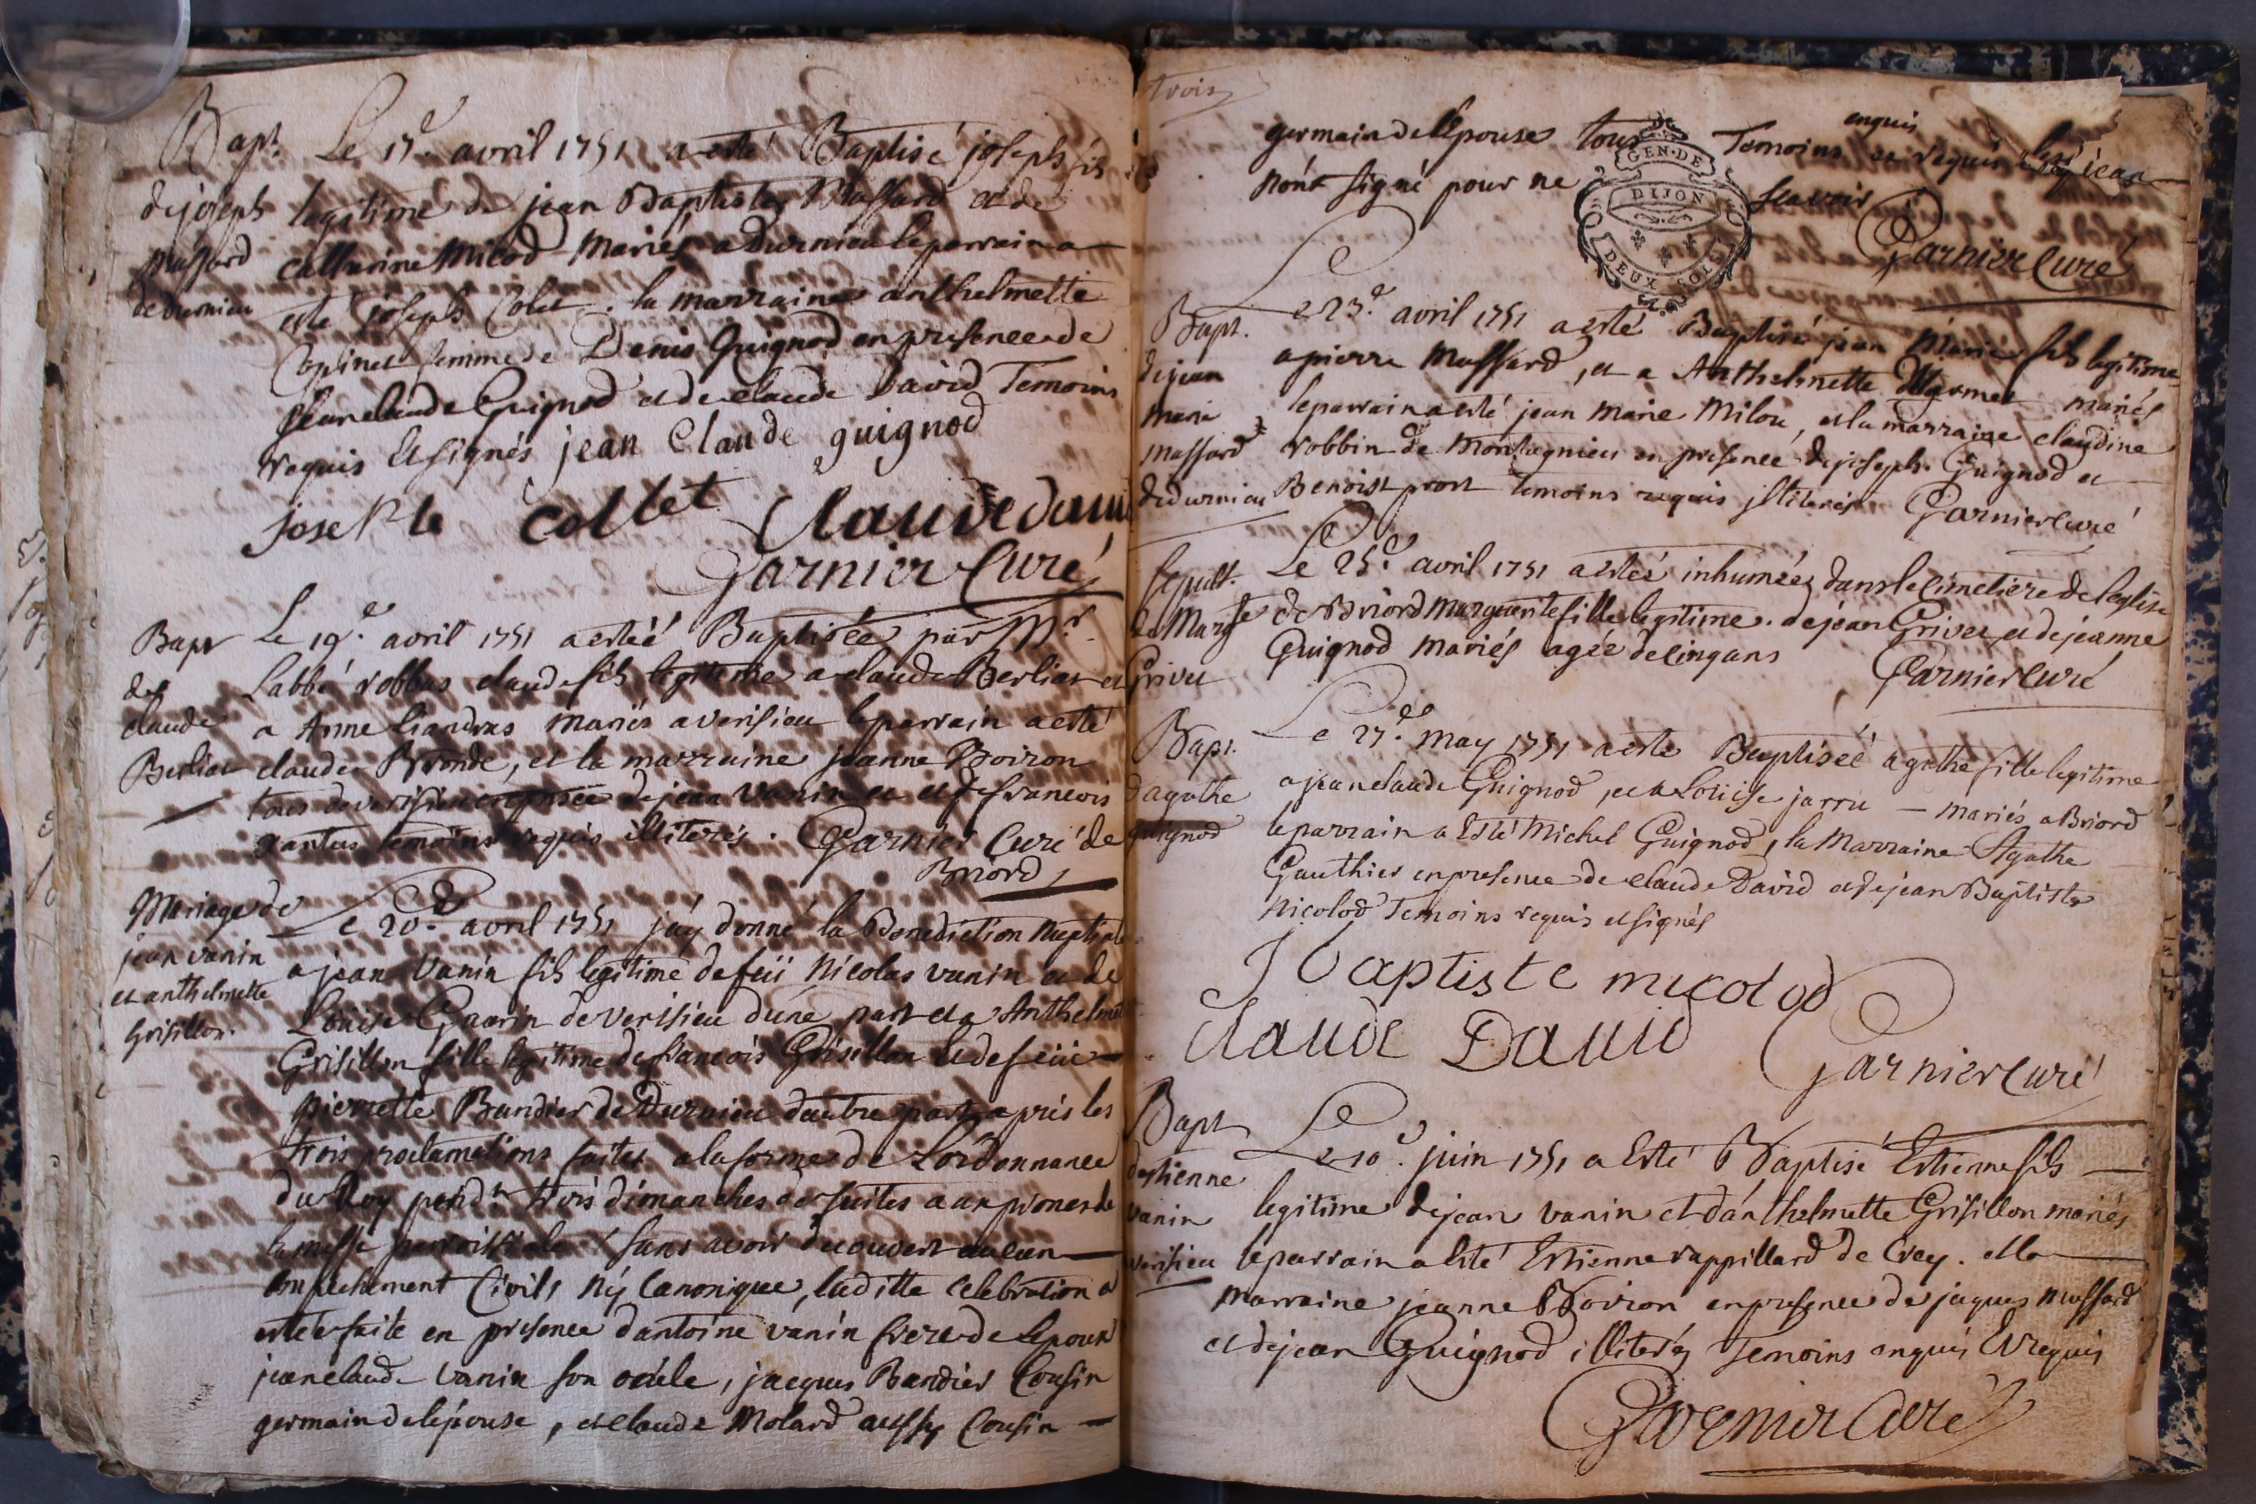 Bapt.
de joseph
Massard
de durnieu
Le 17e. avril 1751 a esté Baptisé joseph fils
legitime de jean Baptiste Massard et de
catherine Micod Mariés a Durnieu le parrain a
esté joseph Colet. la marraine anthelmette
Copinet femme de Denis Guignod en presence de
jean claude Guignod et de claude David Temoins
requis Et signés jean Claude guignod
joseph le collet Claude david
Garnier Curé
Bapt
de
claude
Berliat
Le 19e. avril 1751 a esteé Baptisée par Mr.
Labbé robbas claude fils legitime a claude Berliat et
a Anne liandras mariés a verisieu le parrain a esté
claude Bronde, et la marraine jeanne Boiron
tous de verisieu en prsee de jean vanin et et de francois
temoins requis illiterés. Garnier Curé de
Briord
Mariage de
jean vanin
et anthelmette
Grisillon.
Le 20e. avril 1751 j'ay donné la Benediction nuptiale
a jean Vanin fils legitime de feü Nicolas vanin et de
Loüise Guerin de verisieu d'une part et a Anthelmette
Grisillon fille legitime de francois Grisillon et de feüe
pierrette Bandier de Durnieu d'autre part apres les
trois proclamations faites a la forme de Lordonnance
du Roy pendt. trois dimanches de suites aux prones de
la messe parroissiale sans avoir decouvert aucun
Empechement Civils ny Canonique, laditte Celebration a
esteé faite en presence dantoine vanin frere de Lepoux
jean claude vanin son oncle, jacques Bandier Cousin
germain de lepouse, et claude Molard aussy Cousin
trois
germain de lepouse tous Temoins enquis et requis
nont signé pour ne scavoir
Garnier Curé
GEN. DE
DIJON
DEUX SOLS
Bapt.
de jean
marie
massard
de durnieu
Le 23e. avril 1751 a esté Baptisé jean Marie fils legitime
a pierre Massard, et a Anthelmette Marmet mariés
le parrain a esté jean Marie Milou, et la marraine claudine
robbin de Montagnieu en presence de joseph Guignod et
Benoist pront temoins requis jlliterés Garnier curé
Sepult.
de Margte
Grivet
Le 25e. avril 1751 a esteé inhumeé dans le cimetiere de l'eglise
de Briord Marguerite fille legitime de jean Grivet et de jeanne
Guignod mariés agée de cinq ans Garnier Curé
Bapt.
d'agathe
guignod
Le 27e. May 1751 a este Baptiseé agathe fille legitime
a jean claude Guignod, et a Loüise jarru mariés a Briord
le parrain a Esté Michel Guignod, la Marraine Agathe
Gauthier en presence de claude David et de jean Baptiste
Nicolod Temoins requis et signés
J baptiste nicolod
claude David
Garnier Curé
Bapt
destienne
vanin
verisieu
Le 10e. juin 1751 a Esté Baptisé Estienne fils
legitime de jean vanin et d'anthelmette Grisillon mariés
le parrain a Esté Estienne rappillard de Crey. et la
marraine jeanne Boiron en presence de jaques Massard
et de jean Guignod illiterés temoins enquis Et requis
Garnier Curé